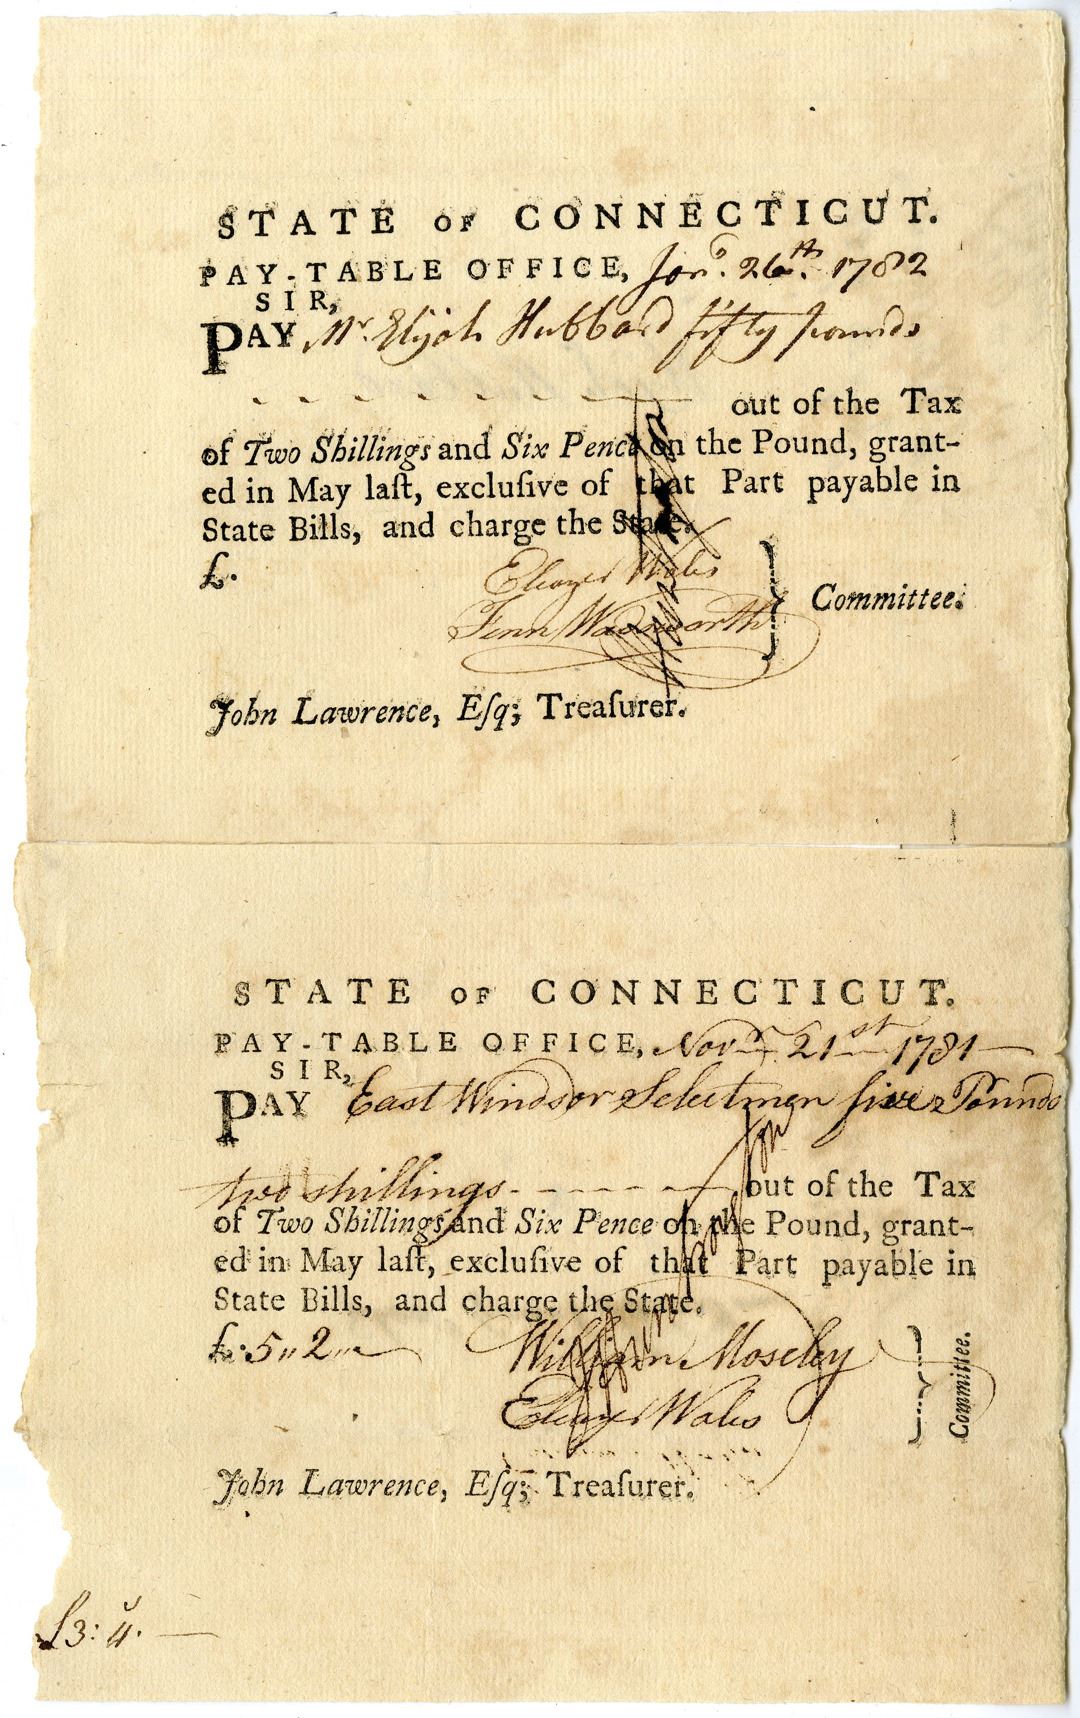 STATE OF CONNECTICUT.
PAY-TABLE OFFICE, Janʸ. 26th. 1782
SIR,
PAY Mr. Elijah Hubbard fifty pounds
- - - - - - - out of the Tax
of Two Shillings and Six Pence on the Pound, grant-
ed in May laſt, excluſive of that Part payable in
State Bills, and charge the State.
£.
Eleazer Wales
Fenn Wadsworth
Committee.
John Lawrence, Eſq; Treaſurer.
STATE OF CONNECTICUT.
PAY-TABLE OFFICE, Novr 21st 1781
SIR,
PAY East Windsor Selectmen five Pounds
two shillings - - - - - out of the Tax
of Two Shillings and Six Pence on the Pound, grant-
ed in May laſt, excluſive of that Part payable in
State Bills, and charge the State.
£. 5 " 2 "
William Moseley
Eleazer Wales
Committee.
John Lawrence, Eſq; Treaſurer.
£3: 4. —